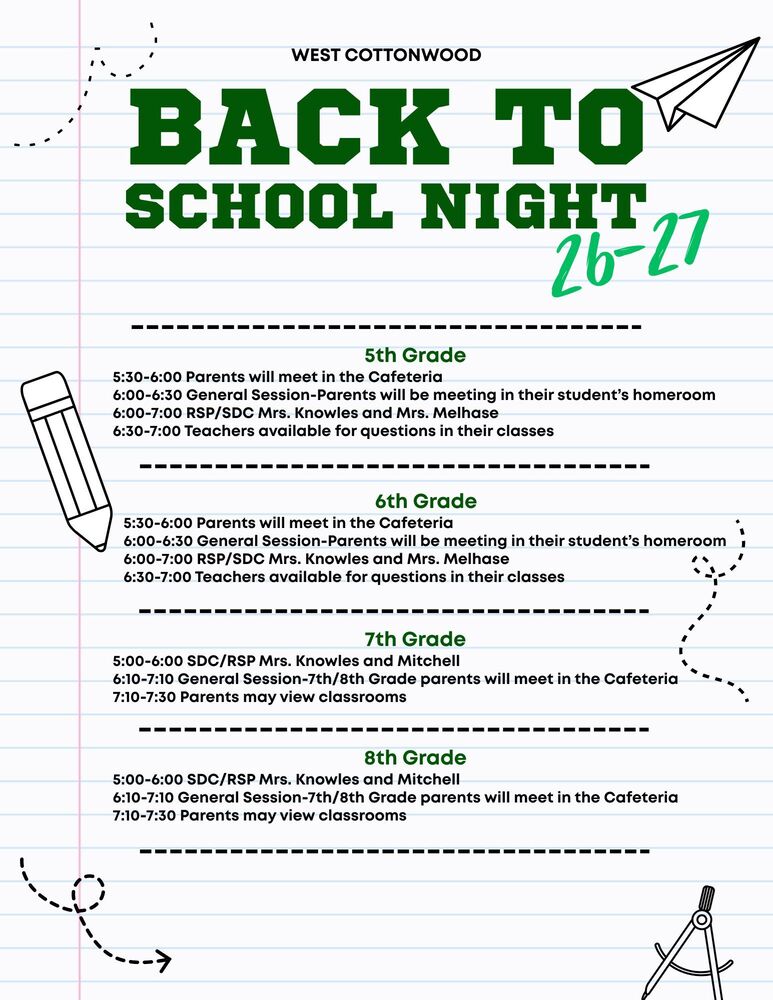 WEST COTTONWOOD
BACK TO
SCHOOL NIGHT
26-27
5th Grade
5:30-6:00 Parents will meet in the Cafeteria
6:00-6:30 General Session-Parents will be meeting in their student's homeroom
6:00-7:00 RSP/SDC Mrs. Knowles and Mrs. Melhase
6:30-7:00 Teachers available for questions in their classes
6th Grade
5:30-6:00 Parents will meet in the Cafeteria
6:00-6:30 General Session-Parents will be meeting in their student's homeroom
6:00-7:00 RSP/SDC Mrs. Knowles and Mrs. Melhase
6:30-7:00 Teachers available for questions in their classes
7th Grade
5:00-6:00 SDC/RSP Mrs. Knowles and Mitchell
6:10-7:10 General Session-7th/8th Grade parents will meet in the Cafeteria
7:10-7:30 Parents may view classrooms
8th Grade
5:00-6:00 SDC/RSP Mrs. Knowles and Mitchell
6:10-7:10 General Session-7th/8th Grade parents will meet in the Cafeteria
7:10-7:30 Parents may view classrooms